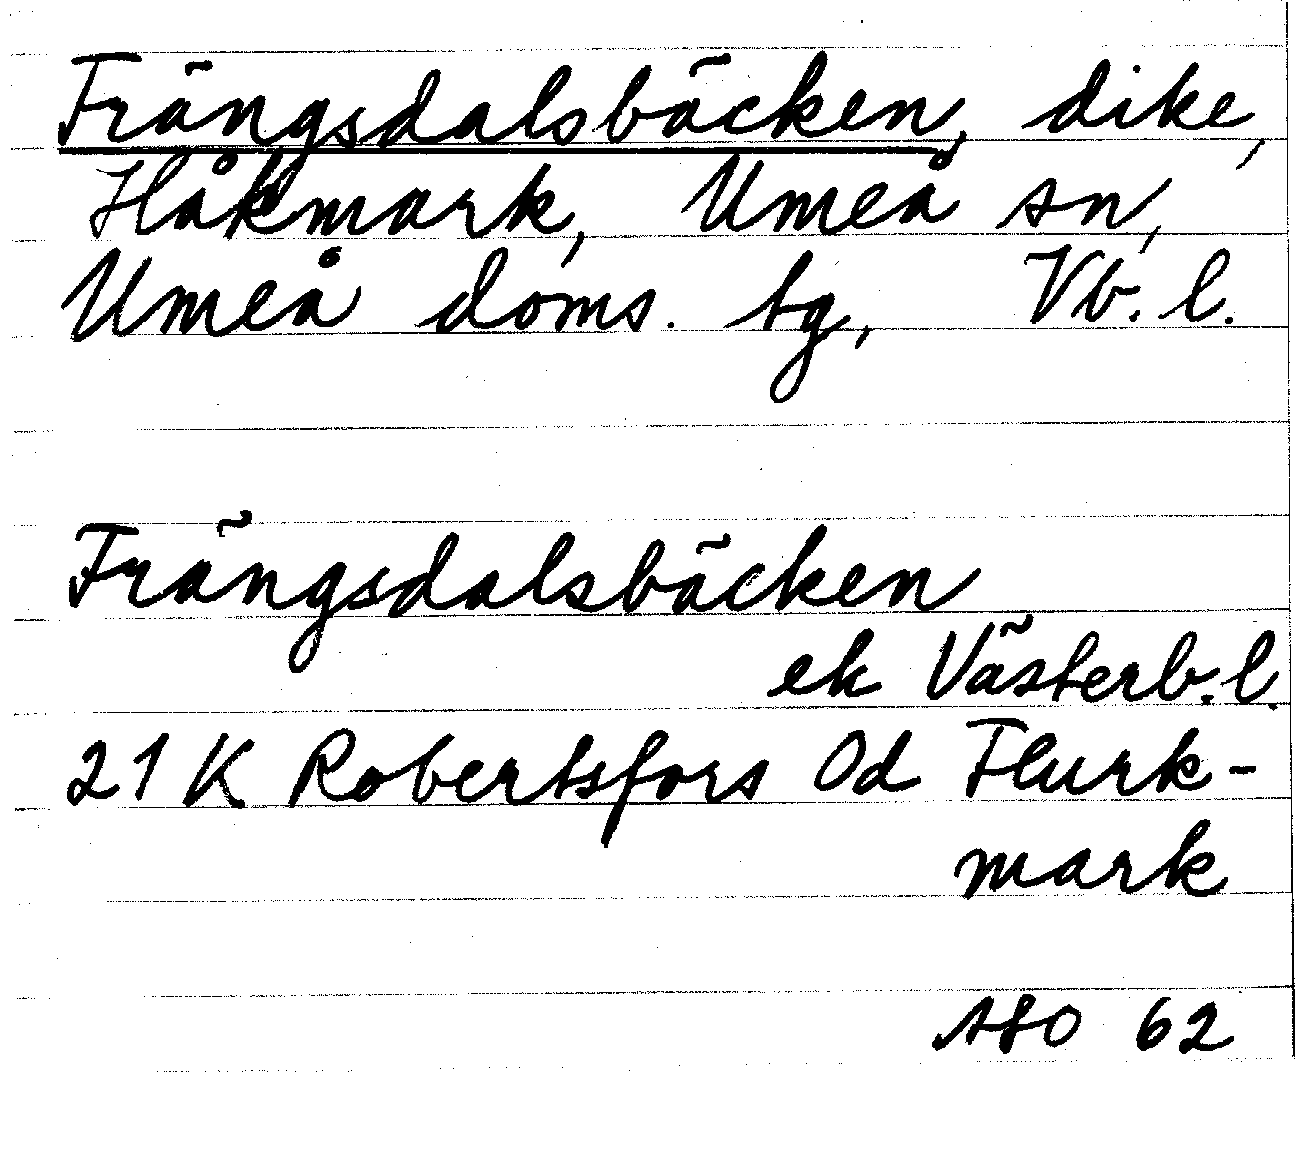 Frängsdalsbäcken, dike,
Håkmark, Umeå sn,
Umeå doms. tg, Vb. l.
Frängsdalsbäcken
ek Västerb. l.
21 K Robertsfors 0d Flurk-
mark
62